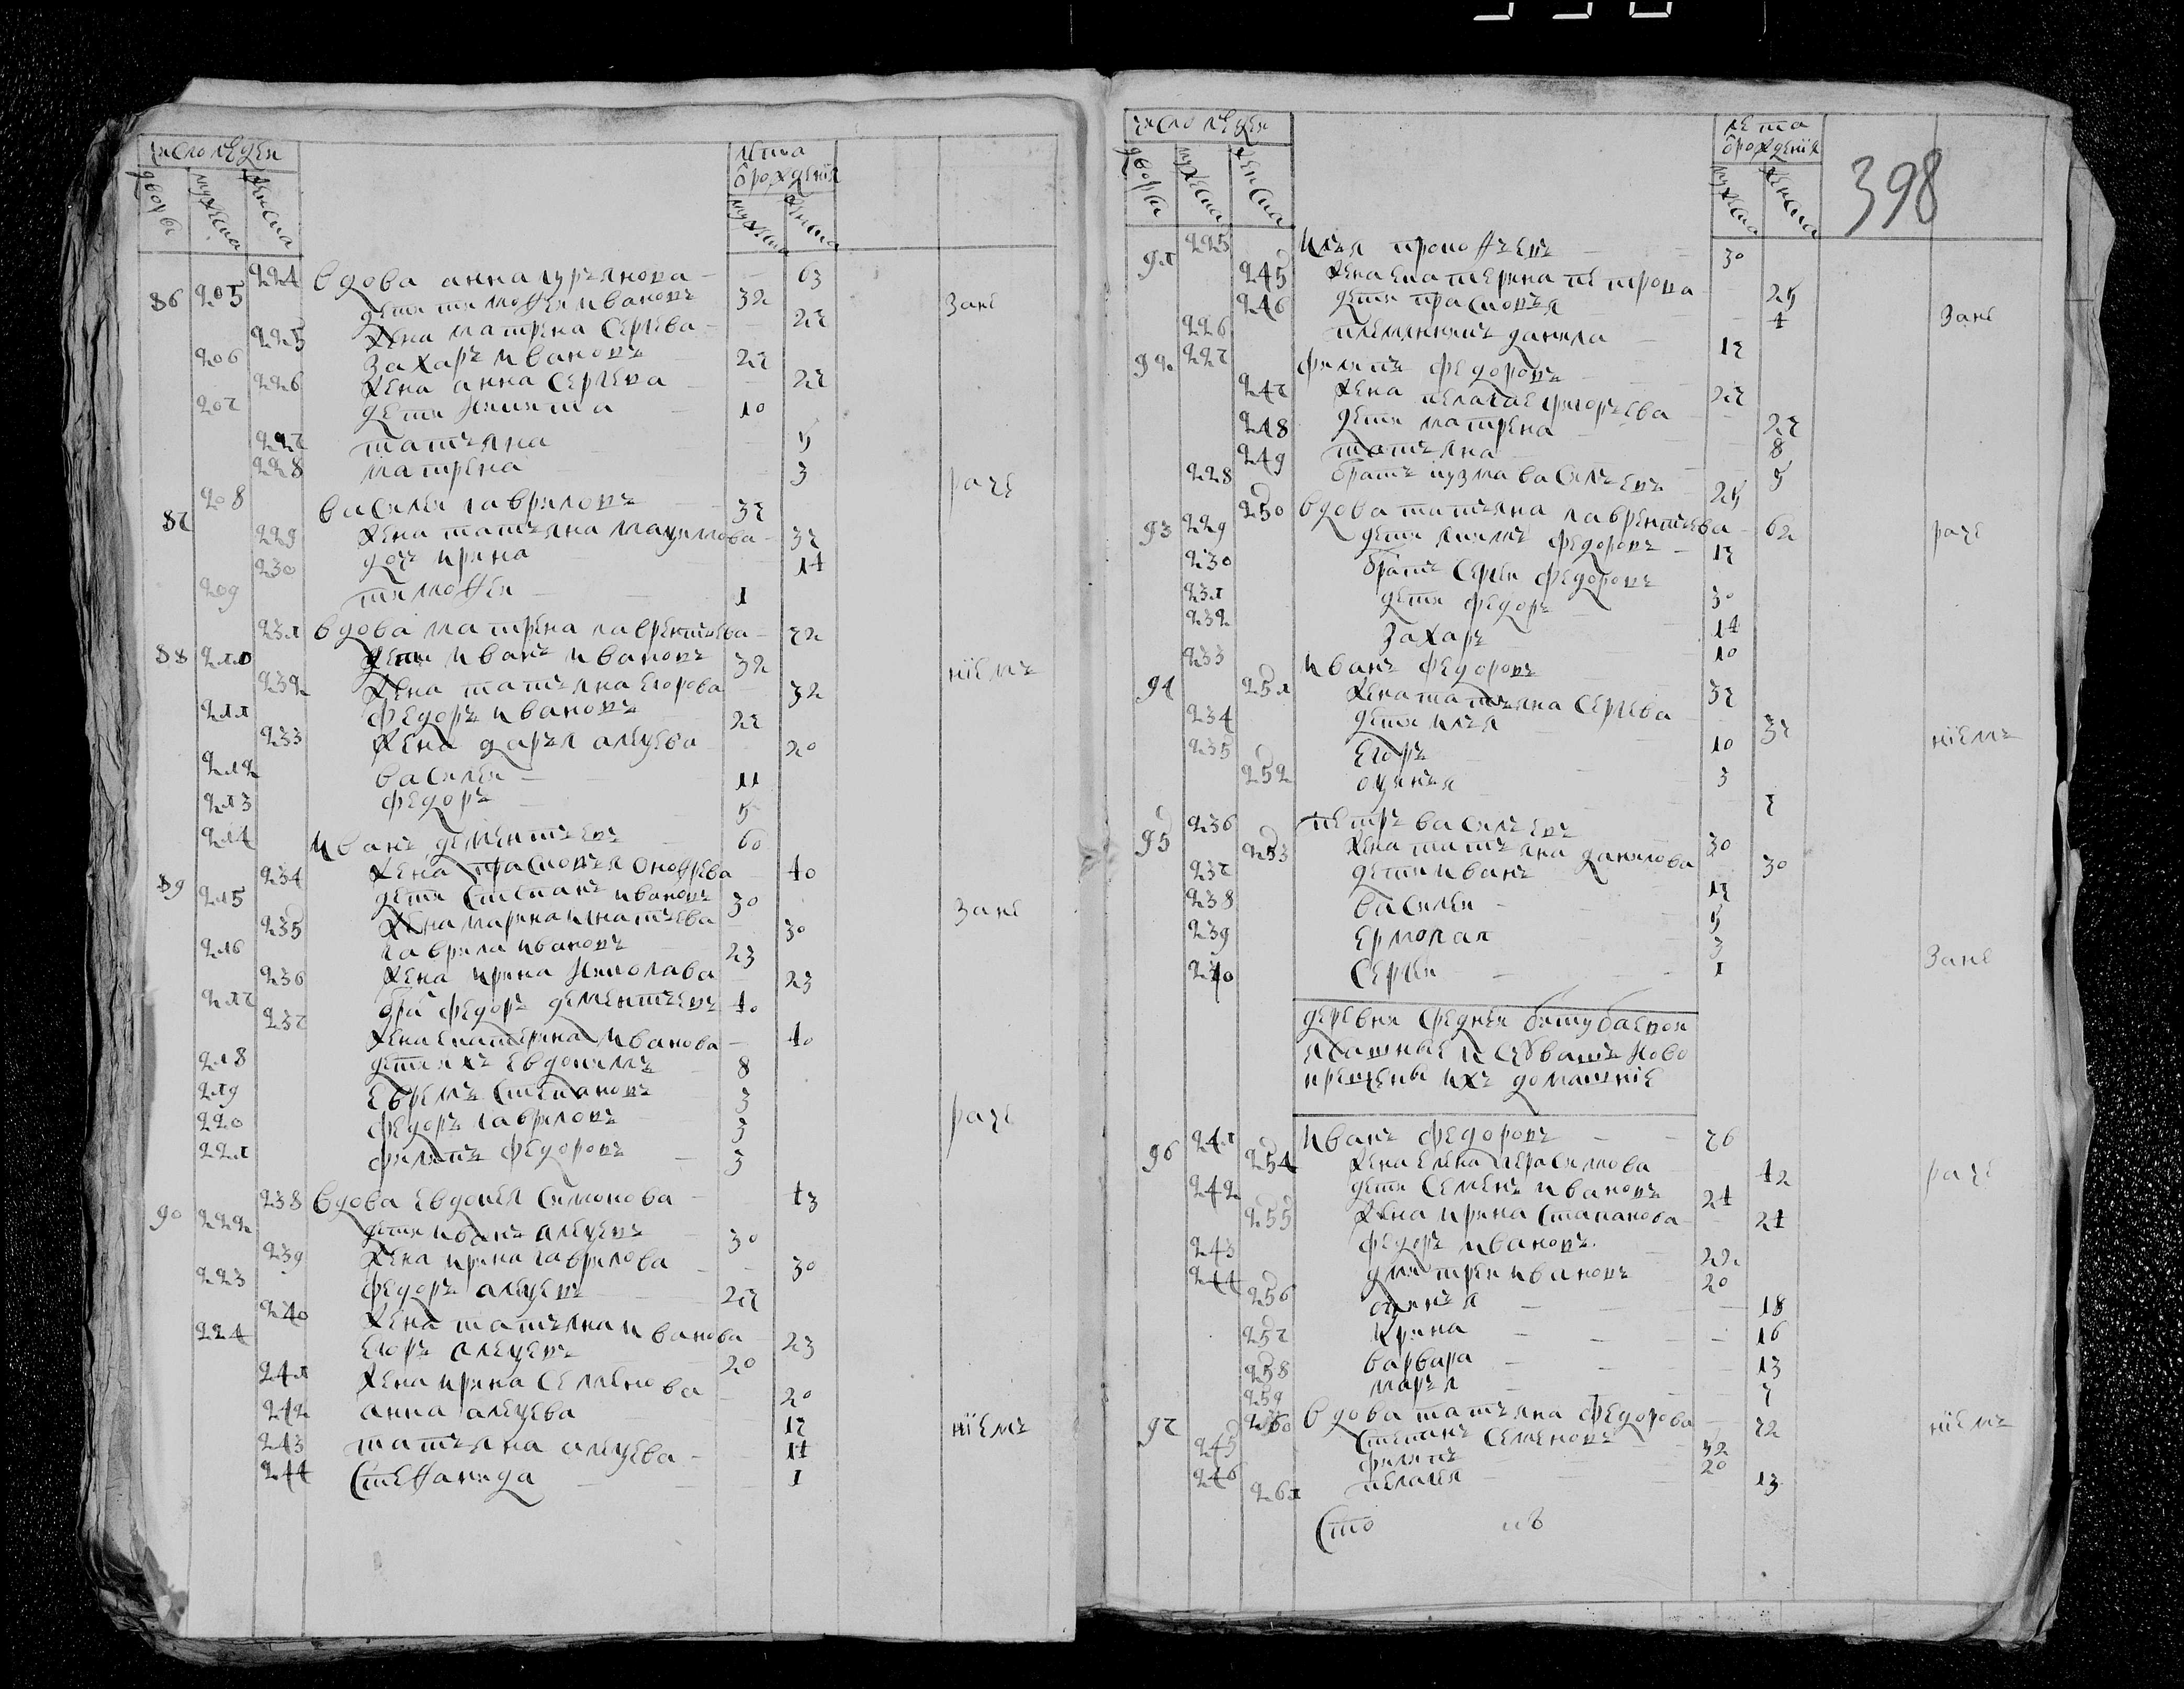 число людеи
двороъ
мужеска
женска
лета
ѿ рождениія
мужеска
женска
224 вдова анна лурьянова - 63
86 205 дети тимоѳеи ивановъ 32 Зане
225 жена матрена Сергева - 27
206 Захаръ ивановъ 27
226 жена анна Сергева - 27
207 дети Никита 10
227 татьяна 5
228 матрена 3
раче
87 208 василеи гавриловъ 37
229 жена татьяна мацимова - 37
230 дочь ирина 14
209 тимоѳеи - 1
231 вдова матрена лаврентьева - 72
88 210 дети иванъ ивановъ 32
ніемъ
232 жена татьяна егорова 32
211 федоръ ивановъ 27
233 жена дарья алецева 20
212 василеи - 11
213 федоръ 5
214 иванъ дементьевъ 60
89 234 жена прасковья оноѳрева 40
215 дети Степанъ ивановъ 30
Зане
235 жена марина игнатьева 30
216 гаврила ивановъ 23
236 жена ирина Николава 23
217 бра федоръ дементьевъ 40
237 жена екатерина иванова - 40
218 дети ихъ евдокимъ 8
219 ефремъ Степановъ 3
220 федоръ гавриловъ 3
раче
221 филипъ федоровъ - 3
90 238 вдова евдокея Симонова - 43
222 дети иванъ алецевъ 30
239 жена ирина гаврилова - 30
223 федоръ алецевъ 27
240 жена татьяна иванова 23
224 егоръ алецевъ 20
241 жена ирина Семенова 20
242 анна алецева 17
ніемъ
243 татьяна алецева - 14
244 Стеѳанида - 1
398
число людеи
двороъ
мужеска
женска
лета
ѿ рождениія
мужеска
женска
91 225 илья прокоѳьевъ 30
245 жена екатерина петрова 25
246 дети прасковья 4
Зане
226 племянникъ данила 17
92 227 филипъ федоровъ 27
247 жена пелагае григорьева 27
248 дети матрена 8
249 татьяна 5
228 братъ кузма васильевъ 25
93 250 вдова татьяна лаврентьева - 62
раче
229 дети филипъ федоровъ - 17
230 братъ Сергеи федоровъ 30
231 дети федоръ 14
232 Захаръ 10
94 233 иванъ федоровъ 37
251 жена татьяна Сергева 37
ніемъ
234 дети илья 10
235 егоръ 3
252 оцинья 7
95 236 петръ васильевъ 30
253 жена татьяна данилова 30
237 дети иванъ 17
238 василеи - 5
239 ермолаи 3
Зане
240 Сергеи - 1
деревни Среднеи битубаевои
ясашные и Себвашъ Ново
крещены ихъ домашніе
96 241 иванъ федоровъ - - 76
254 жена елена герасимова 42
раче
242 дети Семенъ ивановъ 24
255 жена ирина Стапанова 24
243 федоръ ивановъ 22
244 дмитреи ивановъ 20
256 оцинья - - - 18
257 ирина - - - 16
258 варвара - - 13
259 марья 7
97 260 вдова татьяна федорова - 72
ніемъ
245 Степанъ Семеновъ 32
246 филипъ 20
261 пелагея 13
Сто